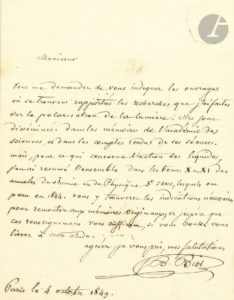 Monsieur
Vous me demandez de vous indiquer les ouvrages
où se trouvent rapportées les recherches que j'ai faites
sur la polarisation de la lumière. Elles sont
disséminées dans les mémoires de l'académie des
sciences, et dans les comptes rendus de ses séances.
mais, pour ce qui concerne l'action des liquides,
j'en ai résumé l'ensemble dans les tomes X et XI des
annales de chimie et de Physique 3e série, lesquels ont
paru en 1844. vous y trouverez les indications nécessaires
pour remonter aux mémoires originaux, et j'espère que
ces renseignemens vous suffiront si vous voulez vous
livrer à cette étude.
agréez je vous prie, mes salutations
Bt Biot
Paris le 4 octobre 1849.